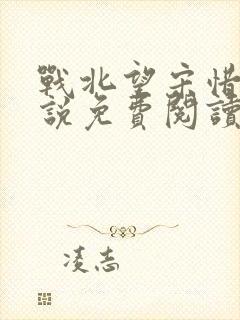 戰北望宋惜
說免費閱讀
凌志